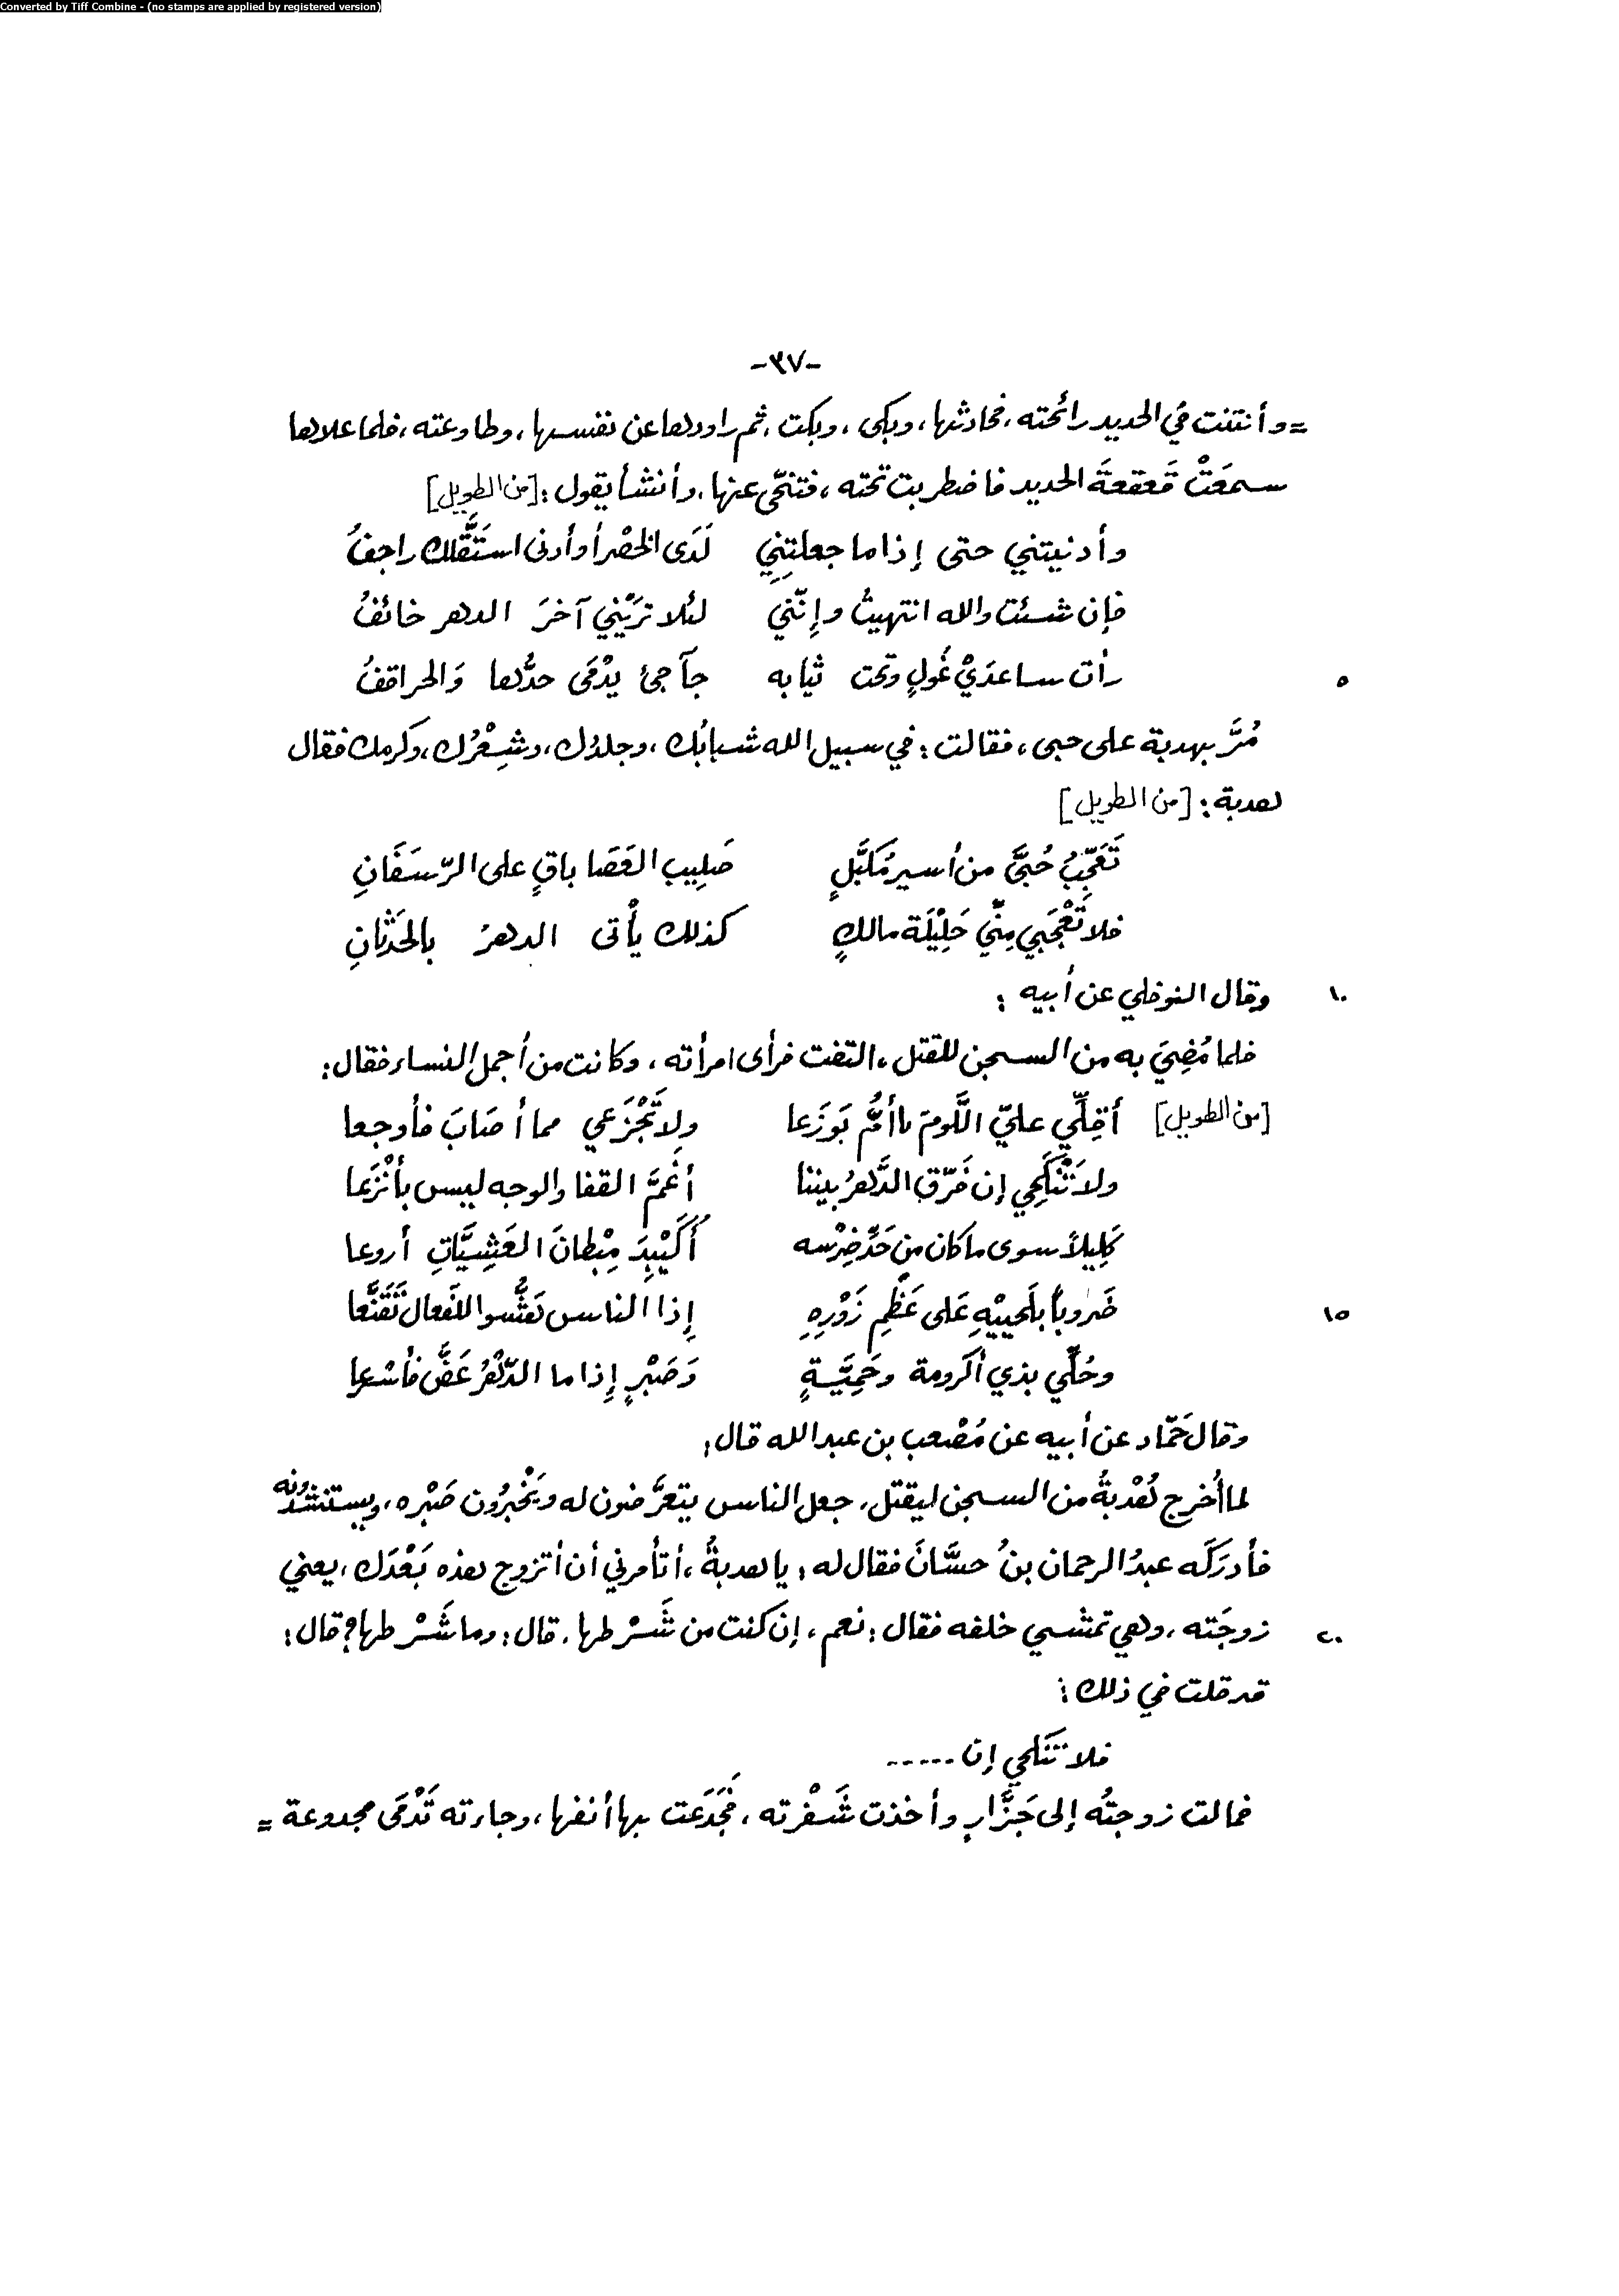 Converted by Tiff Combine - (no stamps are applied by registered version)
-٣٧-
= وأنتنت في الحديد رائحته، فحادثها، وبكى، وبكت، ثم راودها عن نفسها، وطاوعته، فلما علاها
سمعَتْ قَعقعةَ الحديد فاضطربت تحته، فتنحّى عنها، وأنشأ يقول: [من الطويل]
وأدنيتني حتى إذا ما جعلتِنِي لَدَى الخصْر أو أدنى استَقَّلك راجفُ
فإن شئت والله انتهيتُ وإنّني لئلا ترَيْني آخرَ الدهر خائفُ
٥ رأت ساعدَيْ غُولٍ وتحت ثيابه جآجئ يدْمَى حدُّها وَالحراقفُ
مُرَّ بهدبة على حبى، فقالت: في سبيل الله شبابُك، وجلدُك، وشِعْرُك، وكرمك فقال
هدبة: [من الطويل]
تَعَجَّبُ حُبَّى من أسير مُكَبَّلٍ صَلِيب العَصَا باقٍ على الرّسَفَانِ
فلا تَعْجَبي مِنِّي حَلِيْلَة مالكٍ كذلك يأْتى الدهرُ بالحَدَثَانِ
١٠ وقال النوفلي عن أبيه:
فلما مُضِيَ به من السجن للقتل، التفت فرأى امرأته، وكانت من أجمل النساء فقال:
[من الطويل] أقِلِّي عليّ اللَّومَ ياأمُّ بَوزَعا ولا تَجْزَعي مما أصَابَ فأوجعا
ولا تَنْكَحِي إن فَرّق الدَّهرُ بيننا أغَمَّ القفا والوجه ليس بأنْزَعا
كَلِيلاً سوى ما كان من حَدِّ ضِرْسه أُكَيْبِدَ مِبْطانَ العَشِيَّاتِ أروعا
١٥ ضَروباً بلَحييْهِ عَلى عَظْمِ زَوْرِهِ إذا الناس هَشُّوا للفَعال تَقَنَّعا
وحُلِّي بذي أكرومة وحَمِيَّةٍ وَصَبْرٍ إذا ما الدّهْرُ عَضَّ فأسْرعا
وقال حَمّاد عن أبيه عن مُصْعب بن عبدالله قال:
لما أُخرج هُدْبةُ من السجن ليقتل، جعل الناس يتعرَّضون له ويَخْبِرُون صَبْره، ويستنشدونه
فأدرَكَه عبدُ الرحمان بنُ حسَّانَ فقال له: يا هدبةُ، أتأمرني أن أتزوج هذه بَعْدَك، يعني
٢٠ زوجَته، وهي تمشي خلفه فقال: نعم، إن كنت من شَرْطها. قال: وما شَرْطها؟ قال:
قد قلت في ذلك:
فلا تَنْكحي إن -----
فمالت زوجتُه إلى جَزَّارٍ وأخذت شَفْرته، فَجَدَعَت بها أنفها، وجاءته تَدْمَى مجدوعة =